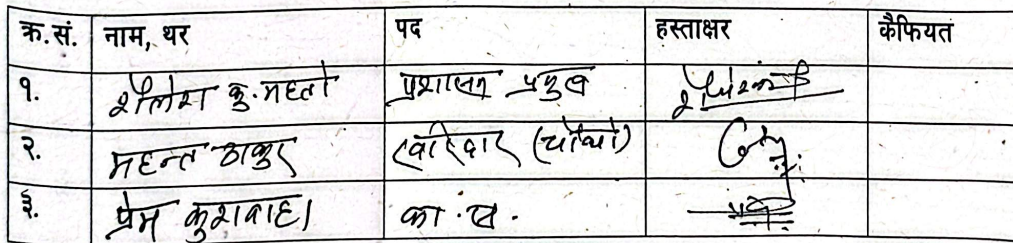 क्र.सं. नाम, थर पद हस्ताक्षर कैफियत
१. शैलेश कु. महतो प्रशासन प्रमुख
२. महन्त ठाकुर खरिदार (चौथो)
३. प्रेम कुशवाहा का.स.